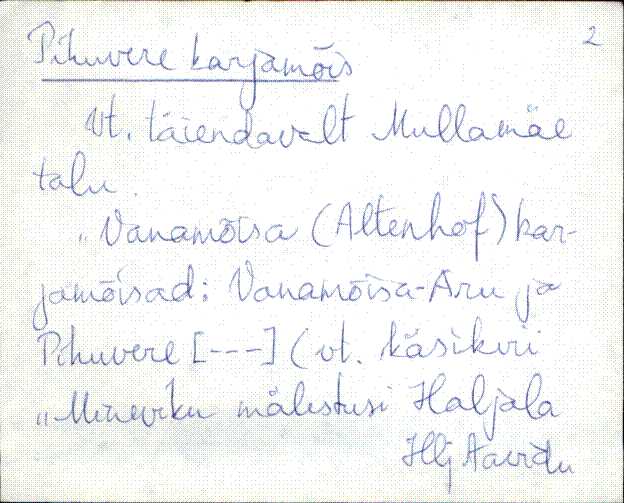 2
Pihuvere karjamõis
Vt. täiendavalt Mullamäe
talu.
"Vanamõisa (Altenhof) kar-
jamõisad: Vanamõisa-Aru ja
Pihuvere [---] (vt. käsikiri
"Mineviku mälestusi Haljala
Hlj Aavidu